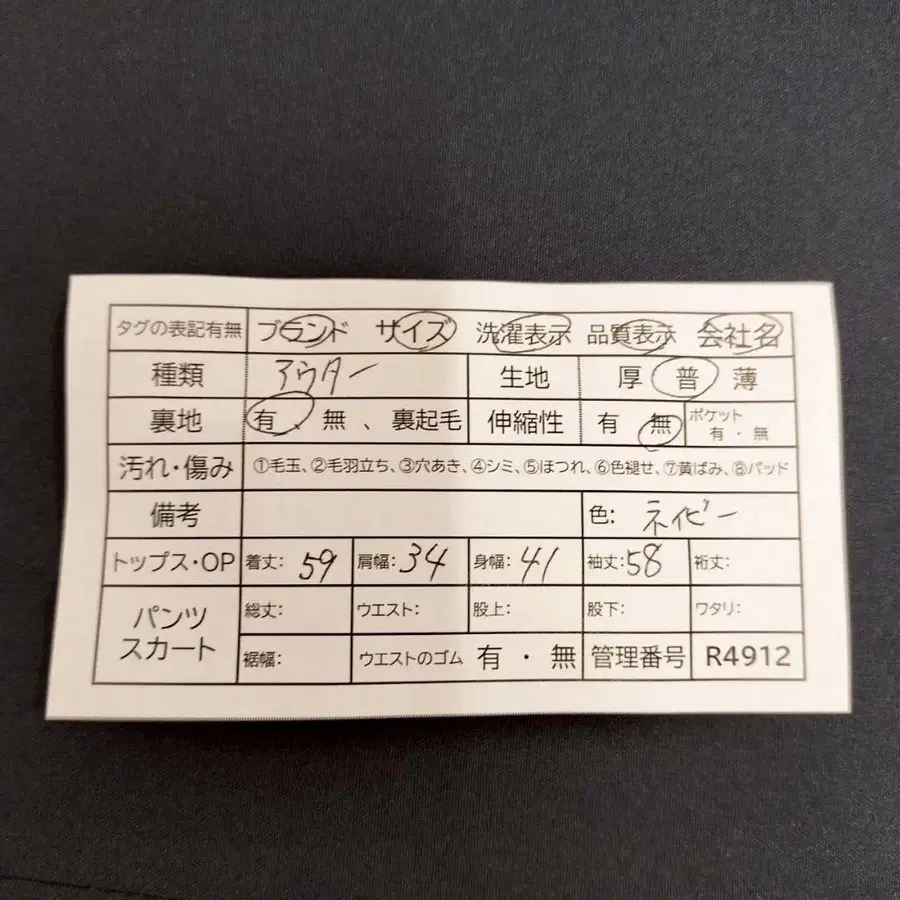 タグの表記有無 ブランド サイズ 洗濯表示 品質表示 会社名
種類 アウター 生地 厚 普 薄
裏地 有、無、裏起毛 伸縮性 有 無 ポケット 有・無
汚れ・傷み ①毛玉、②毛羽立ち、③穴あき、④シミ、⑤ほつれ、⑥色褪せ、⑦黄ばみ、⑧パッド
備考 色: ネイビー
トップス・OP 着丈: 59 肩幅: 34 身幅: 41 袖丈: 58 裄丈:
パンツ スカート 総丈: ウエスト: 股上: 股下: ワタリ:
裾幅: ウエストのゴム 有・無 管理番号 R4912